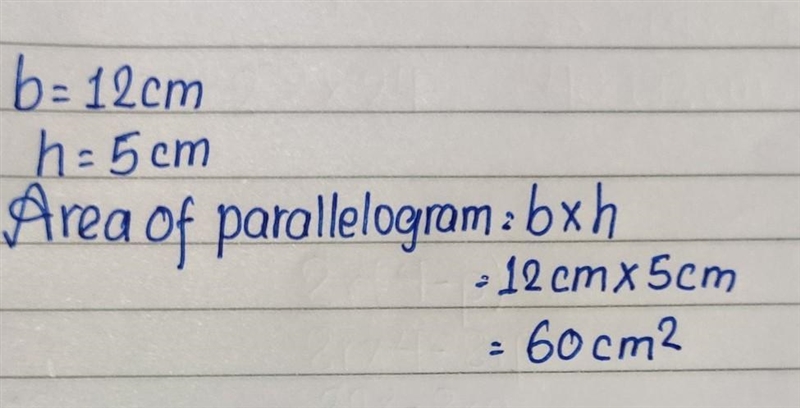 b = 12cm
h = 5 cm
Area of parallelogram = b×h
= 12 cm × 5cm
= 60 cm²